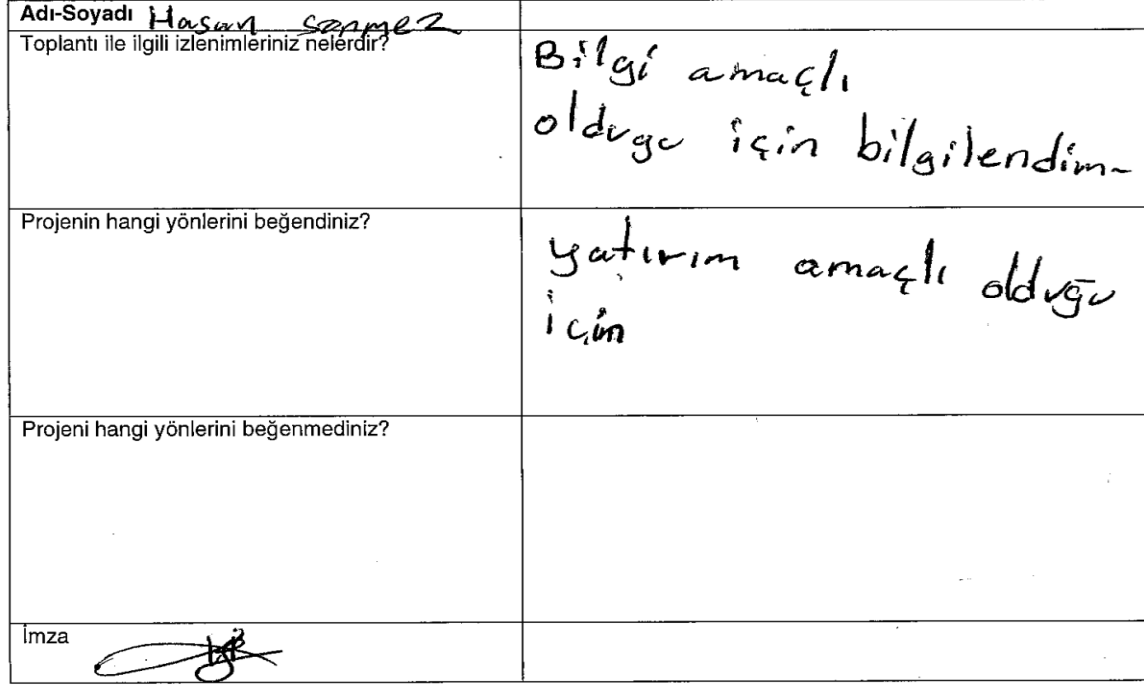 Adı-Soyadı Hasan Sonmez
Toplantı ile ilgili izlenimleriniz nelerdir?
Bilgi amaçlı
oldugu için bilgilendim-
Projenin hangi yönlerini beğendiniz?
yatırım amaçlı olduğu
için
Projeni hangi yönlerini beğenmediniz?
İmza